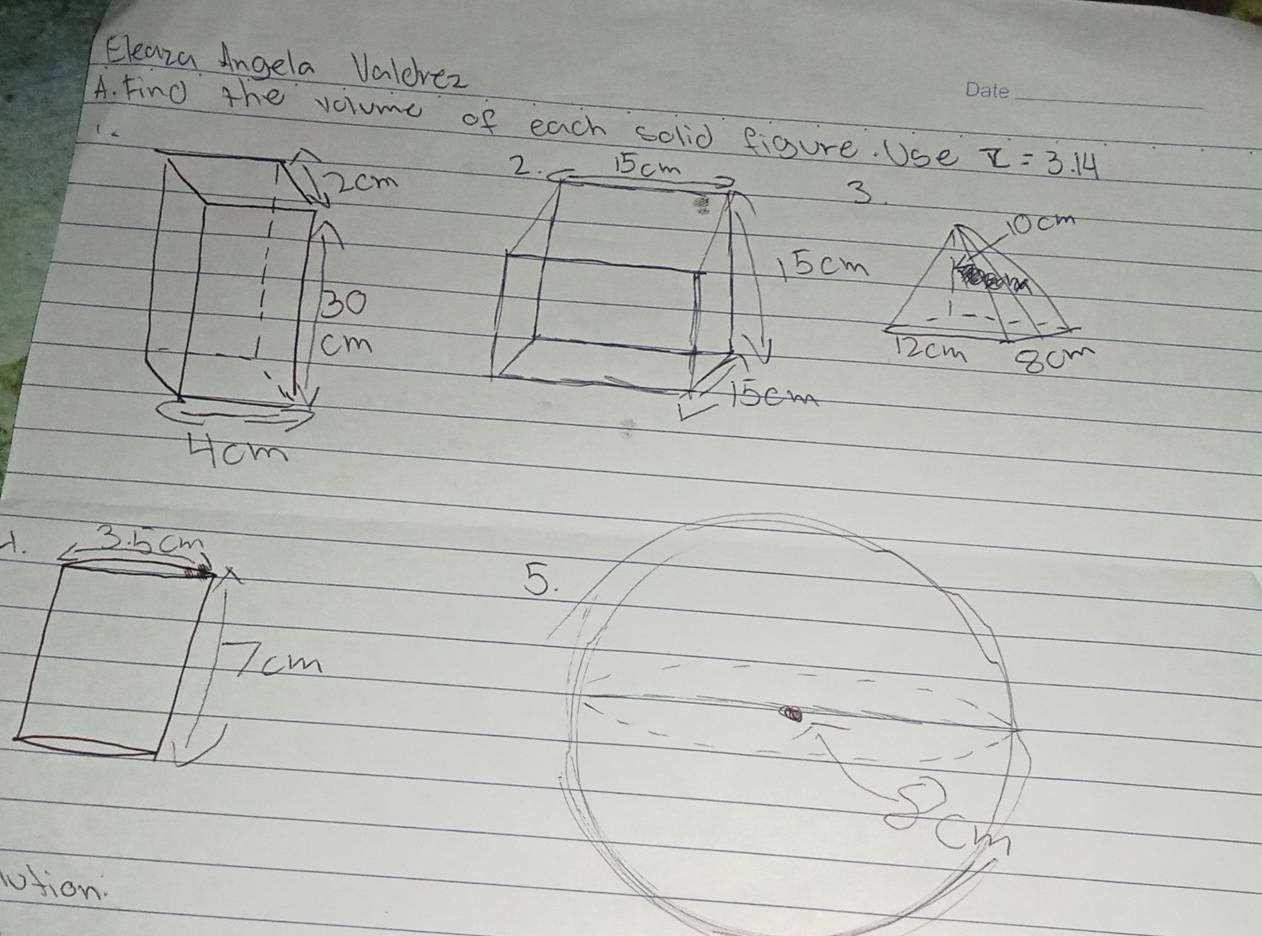 Eleaza Angela Valdrez
Date
A. Find the volume of each solid figure. Use π = 3.14
1.
2cm
30
cm
4cm
2.
15cm
15cm
15cm
3.
10cm
12cm
8cm
3.5cm
7cm
5.
8cm
lution.